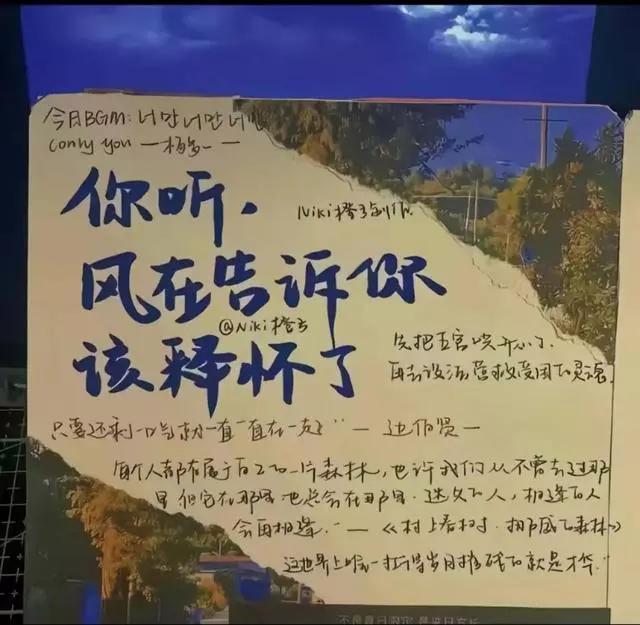 今日BGM: 너만너만너만
(only you 一杨多一一
你听.
Niki橙子创作.
风在告诉你
@Niki橙子
该释怀了
先把五官哄开心了.
再去设法营救受困的灵魂.
只要还剩一口气就一直“直在一起” — 边伯贤 —
每个人都有属于自己的一片森林,也许我们从不曾去过那
里 但它在那里 也总会在那里. 迷失的人, 相逢的人
会再相逢.” — 《村上春树·挪威的森林》
这世界上唯一扛得岁月摧残的就是才华.”